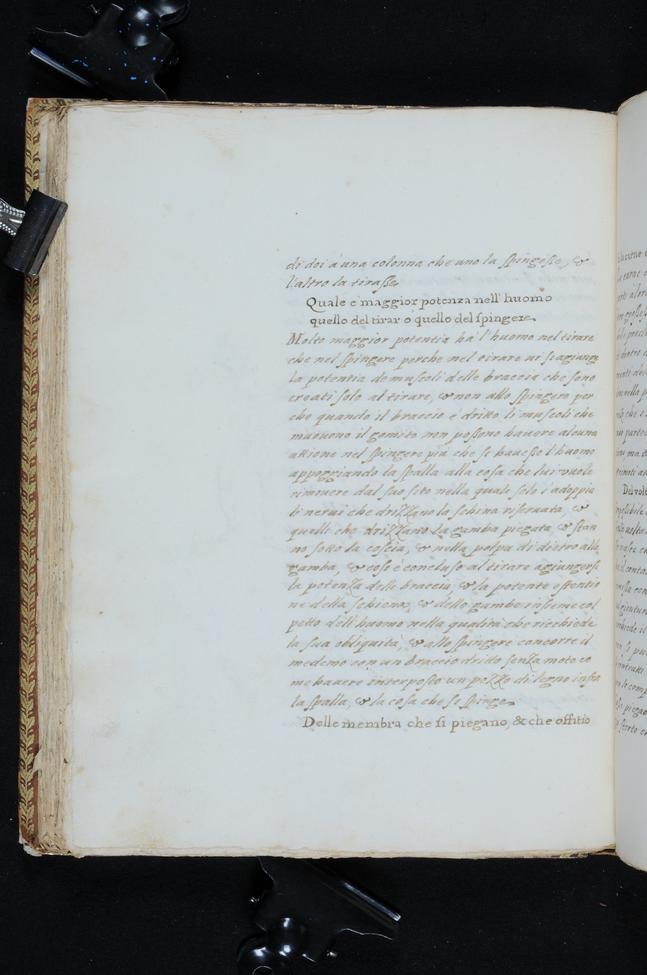 di doi à una colonna che uno la spingesse, &
l'altro la tirasse.
Quale e maggior potenza nell' huomo
quello del tirar o quello del spingere.
Molto maggior potentia ha l'huomo nel tirare
che nel spingere perche nel tirare ui si agiunge
la potentia de muscoli delle braccia che sono
creati solo al tirare, & non allo spingere per
che quando il braccio è dritto li muscoli che
muouono il gomito non possono hauere alcuna
attione nel spingere più che se hauesse l'huomo
appoggiando la spalla alla cosa che lui vuole
rimouere dal suo sito nella quale solo s'adoppia
li nerui che drizzano la schina riseruata, &
quelli che drizzano la gamba piegata, & stan
no sotto la coscia, & nella polpa di dietro alla
gamba, & cosi è concluso al tirare agiungersi
la potenza delle braccia, & la potente estentio
ne della schiena, & delle gambe insieme col
petto dell'huomo nella qualità che richiede
la sua obliquità, & allo spingere concorre il
medemo con un braccio dritto senza moto co
me hauere interposto un pezzo di legno infra
la spalla, & la cosa che se spinge.
Delle membra che si piegano, & che offitio